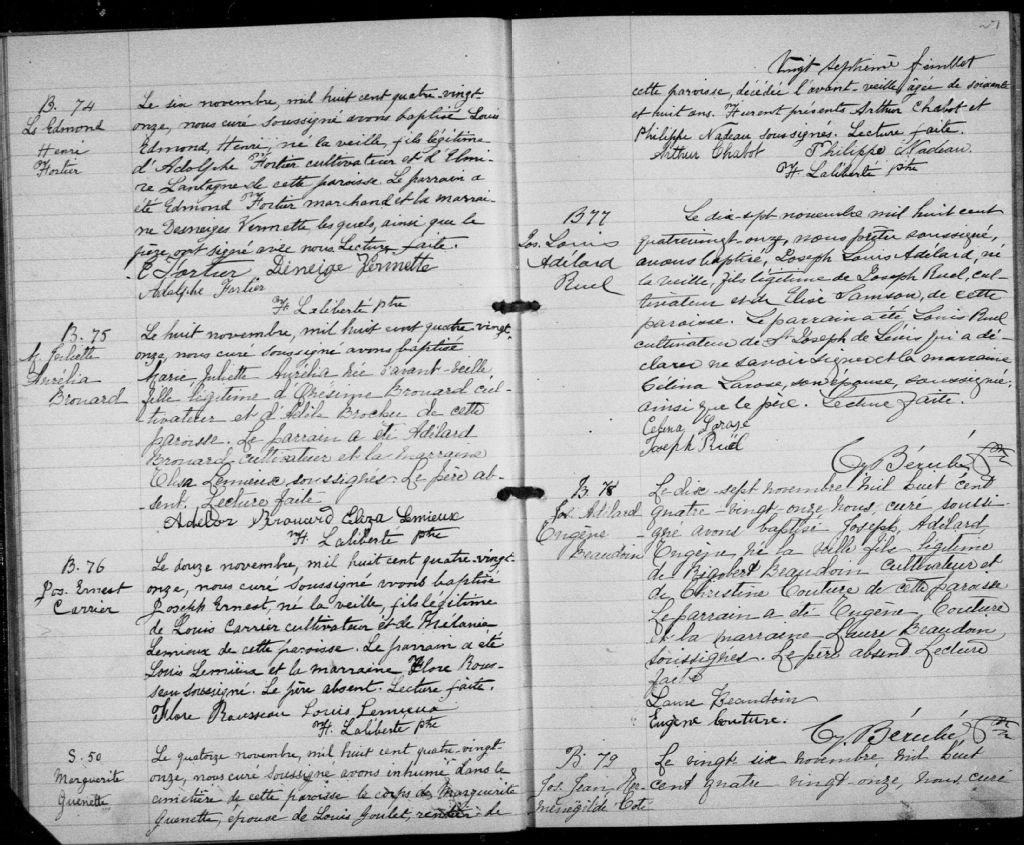 B. 74
Ls Edmond
Henri
Fortier
Le six novembre, mil huit cent quatre-vingt-
onze, nous curé soussigné avons baptisé Louis
Edmond, Henri, né la veille, fils légitime
d'Adolphe Fortier cultivateur et d'Elmi-
re Lantagne de cette paroisse. Le parrain a
été Edmond Fortier marchand et la marrai-
ne Desneiges Vermette lesquels, ainsi que le
père, ont signé avec nous. Lecture faite.
E Fortier Déneige Vermette
Adolphe Fortier
H. Laliberté ptre
B. 75
M. Juliette
Aurélia
Brouard
Le huit novembre, mil huit cent quatre-vingt-
onze, nous curé soussigné avons baptisé
Marie, Juliette Aurélia née l'avant-veille
fille légitime d'Onésime Brouard cul-
tivateur et d'Adèle Brochu de cette
paroisse. Le parrain a été Adélard
Brouard cultivateur et la marraine
Eliza Lemieux soussignés. Le père ab-
sent. Lecture faite
Adélar Brouard Eliza Lemieux
H. Laliberté ptre
B. 76
Jos. Ernest
Carrier
Le douze novembre, mil huit cent quatre-vingt-
onze, nous curé soussigné avons baptisé
Joseph Ernest, né la veille, fils légitime
de Louis Carrier cultivateur et de Mélanie
Lemieux de cette paroisse. Le parrain a été
Louis Lemieux et la marraine Flore Rous-
seau soussigné. Le père absent. Lecture faite.
Flore Rousseau Louis Lemieux
H. Laliberté ptre
S. 50
Marguerite
Guenette
Le quatorze novembre, mil huit cent quatre-vingt-
onze, nous curé soussigné avons inhumé dans le
cimetière de cette paroisse le corps de Marguerite
Guenette, épouse de Louis Goulet, rentier de
Vingt septième feuillet
cette paroisse, décédée l'avant-veille âgée de soixante
et huit ans. Furent présents Arthur Chabot et
Philippe Nadeau soussignés. Lecture faite.
Arthur Chabot Philippe Nadeau
H. Laliberté ptre
B 77
Jos. Louis
Adélard
Ruel
Le dix-sept novembre mil huit cent
quatrevingt-onze, nous prêtre soussigné,
avons baptisé, Joseph Louis Adélard, né
la veille, fils légitime de Joseph Ruel, cul-
tivateur et de Elise Samson, de cette
paroisse. Le parrain a été Louis Ruel
cultivateur de St Joseph de Lévis qui a dé-
clarer ne savoir signer et la marraine
Célina Larose, son épouse, soussignée,
ainsi que le père. Lecture faite.
Celina Larose
Joseph Ruël
Cy. Bérubé, Ptre
B. 78
Jos. Adélard
Eugène
Beaudoin
Le dix-sept novembre mil huit cent
quatre-vingt-onze nous, curé soussi-
gné avons baptisé Joseph, Adélard
Eugène, né la veille fils légitime
de Rigobert Beaudoin cultivateur et
de Christine Couture de cette paroisse
Le parrain a été Eugène Couture
et la marraine Laure Beaudoin,
soussignés. Le père absend Lecture
faite
Laure Beaudoin
Eugène Couture.
Cy. Bérubé, Ptre
B. 79
Jos. Jean Her-
ménégilde Coté
Le vingt six novembre, mil huit
cent quatre vingt onze, nous curé